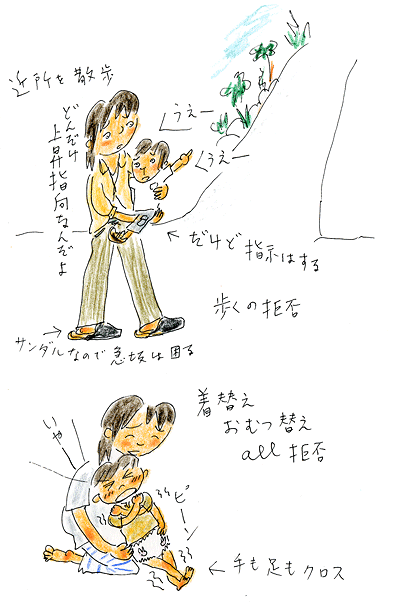 近所を散歩
どんだけ
上昇指向なんだよ
うえー
うえー
←だけど指示はする
歩くの拒否
→
サンダルなので急坂は困る
着替え
おむつ替え
all 拒否
いやー
ピーン
←手も足もクロス